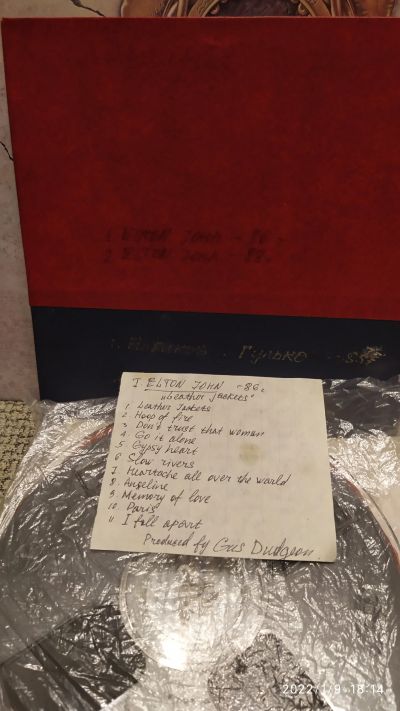 1 ELTON JOHN - 86.
2 ELTON JOHN - 88.
I ELTON JOHN -86.
„Leather Jackets"
1. Leather Jackets
2. Hoop of fire
3 Don't trust that woman
4 Go it alone
5 Gypsy heart
6 Slow rivers
7. Heartache all over the world
8. Angeline
9. Memory of love
10. Paris
11 I fall apart
Produced by Gus Dudgeon
2022/1/9 18:14